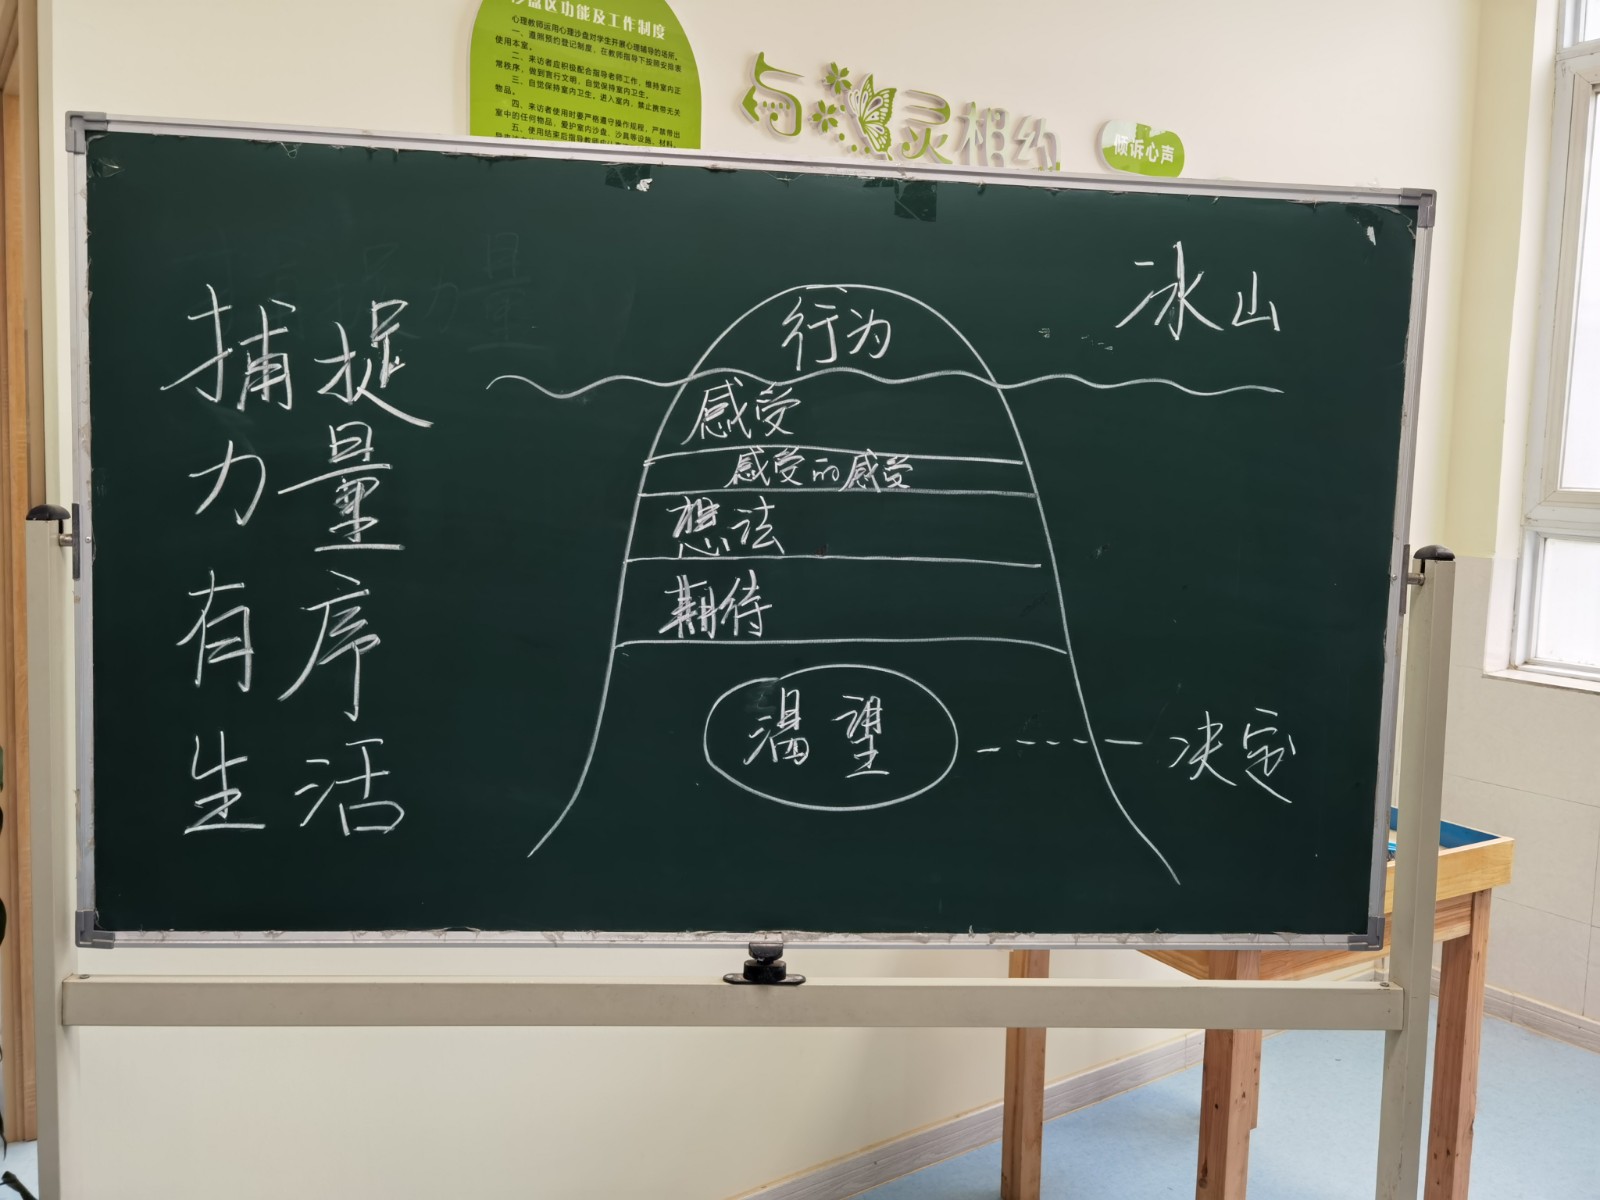 沙盘区功能及工作制度
心理教师运用心理沙盘对学生开展心理辅导的场所。
一、遵测预约登记制度，在教师指导下按照安排表
使用本室。
二、来访者应积极配合指导老师工作，维持室内正
常秩序，做到言行文明，自觉保持室内卫生。
三、自觉保持室内卫生。进入室内，禁止携带无关
物品。
四、来访者使用时要严格遵守操作规程，严禁带出
室中的任何物品，爱护室内沙盘、沙具等设施、材料。
五、使用结束后指导教师
与灵相约
倾诉心声
冰山
捕捉
力量
有序
生活
行为
感受
感受的感受
想法
期待
渴望
决定